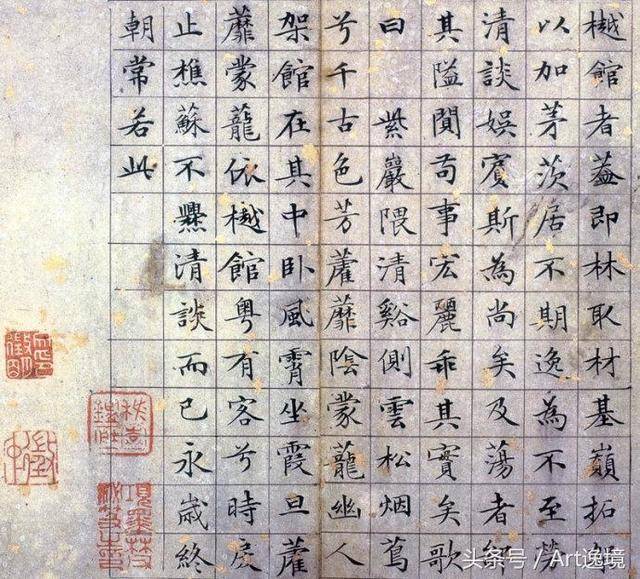 樾館者蓋即林取材基巔拓
以加茅茨居不期逸為不至勞
清談娛賓斯為尚矣及蕩者
其隘聞苟事宏麗乖其實矣歌
曰 紫巖隈清谿側雲松烟蔦
兮千古色芳藿蘼陰蒙蘢幽人
架館在其中卧風霄坐霞旦藿
蘼蒙蘢依樾館粵有客兮時戾
止樵蘇不爨清談而已永歲終
朝常若此
头条号 / Art逸境